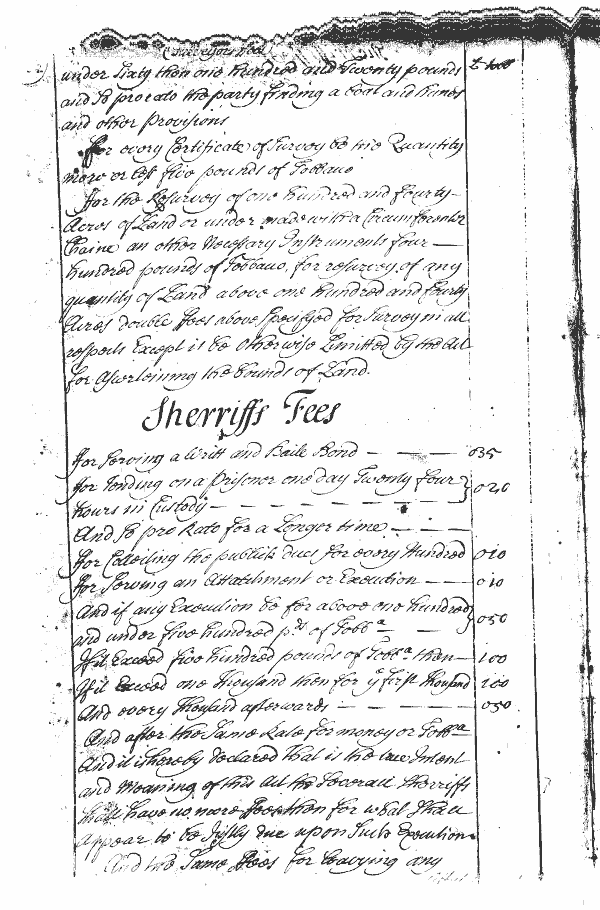 Surveyors Fees
under Sixty then one hundred and Twenty pounds
and So pro rato the party finding a boat and hands
and other Provisions
For every Certificate of Survey be the Quantity
more or less five pounds of Tobbaco
For the Resurvey of one hundred and fourty
Acres of Land or under made with a Circumferenter
Chaine an other Necessary Instruments four —
hundred pounds of Tobbaco, for resurvey of any
quantity of Land above one hundred and fourty
Acres double ffees above Specifyed for Survey in all
respects Except it be otherwise Limitted by the Act
for Ascerteining the bounds of Land.
Sherriffs Fees
For Serving a Writt and Baile Bond — — — 035
For Tending on a Prisoner one day Twenty four } 020
hours in Custody — — — — — — —
And So pro Rato for a Longer time — — —
For Collecting the publick dues for every Hundred 010
For Serving an Attatchment or Execution — — 010
And if any Execution be for above one hundred } 050
and under five hundred p.ds of Tobb.a — —
If it Exceed five hundred pounds of Tobb.a then — 100
If it Exceed one Thousand then for ye first thousand 200
And every Thousand afterwards — — — — 050
And after the Same Rate for money or Tobb.a
And it is hereby Declared That it is the true Intent
and Meaning of this Act the Severall Sherriffs
Shall have no more ffees then for what Shall
Appear to be Justly due upon Such Execution
And the Same ffees for Leavying any